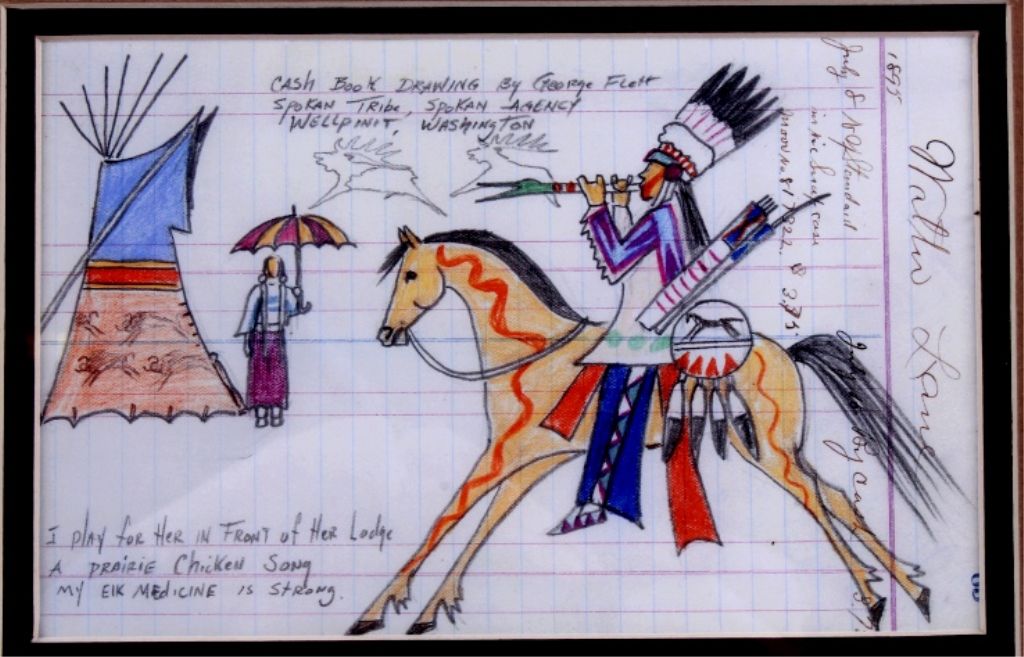 CASH BOOK DRAWING BY GEORGE FLETT
SPOKAN TRIBE, SPOKAN AGENCY
WELLPINIT, WASHINGTON
I PLAY FOR HER IN FRONT OF HER LODGE
A PRAIRIE CHICKEN SONG
MY ELK MEDICINE IS STRONG.
1895
July 8
$ 3,75
Lane